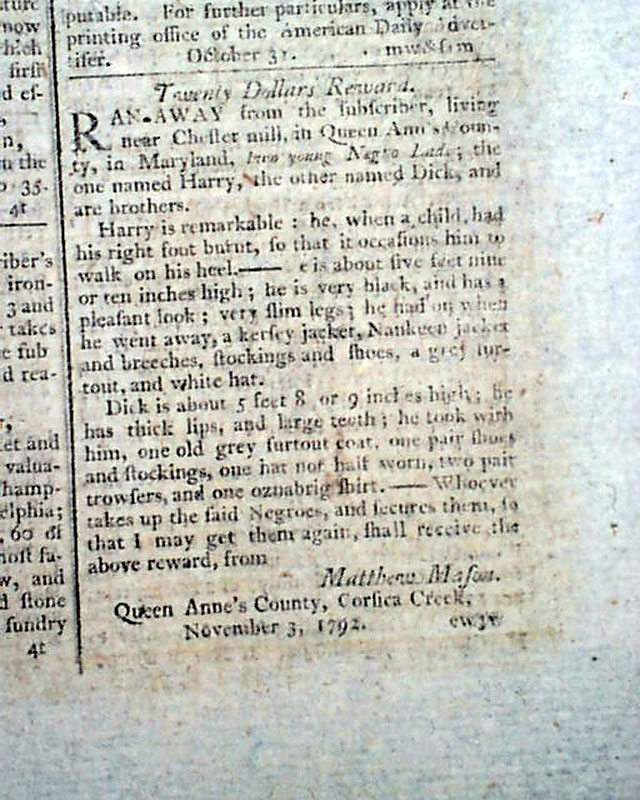 putable. For further particulars, apply at the
printing office of the American Daily Adver-
tifer. October 31. mw&fım
Twenty Dollars Reward.
RAN-AWAY from the fubfcriber, living
near Chefter mill, in Queen Ann's Coun-
ty, in Maryland, two young Negro Lads; the
one named Harry, the other named Dick, and
are brothers.
Harry is remarkable: he, when a child, had
his right foot burnt, fo that it occafions him to
walk on his heel.—— e is about five feet nine
or ten inches high; he is very black, and has a
pleafant look; very flim legs; he had on when
he went away, a kerfey jacket, Nankeen jacket
and breeches, ftockings and fhoes, a grey fur-
tout, and white hat.
Dick is about 5 feet 8 or 9 inches high; he
has thick lips, and large teeth; he took with
him, one old grey furtout coat, one pair fhoes
and ftockings, one hat not half worn, two pair
trowfers, and one oznabrig fhirt.—— Whoever
takes up the faid Negroes, and fecures them, fo
that I may get them again, fhall receive the
above reward, from
Matthew Mason.
Queen Anne's County, Corfica Creek,
November 3, 1792. ew3w
now
which
firft
d ef-
n,
n the
35.
4t
riber's
iron-
3 and
takes
e fub
d rea-
et and
valua-
hamp-
elphia;
60 of
moft fa-
w, and
d ftone
fundry
4t